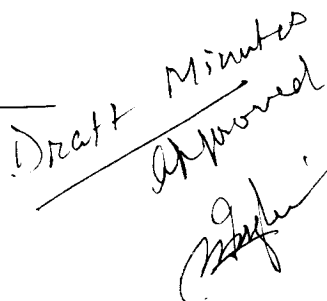 Draft Minutes
Approved